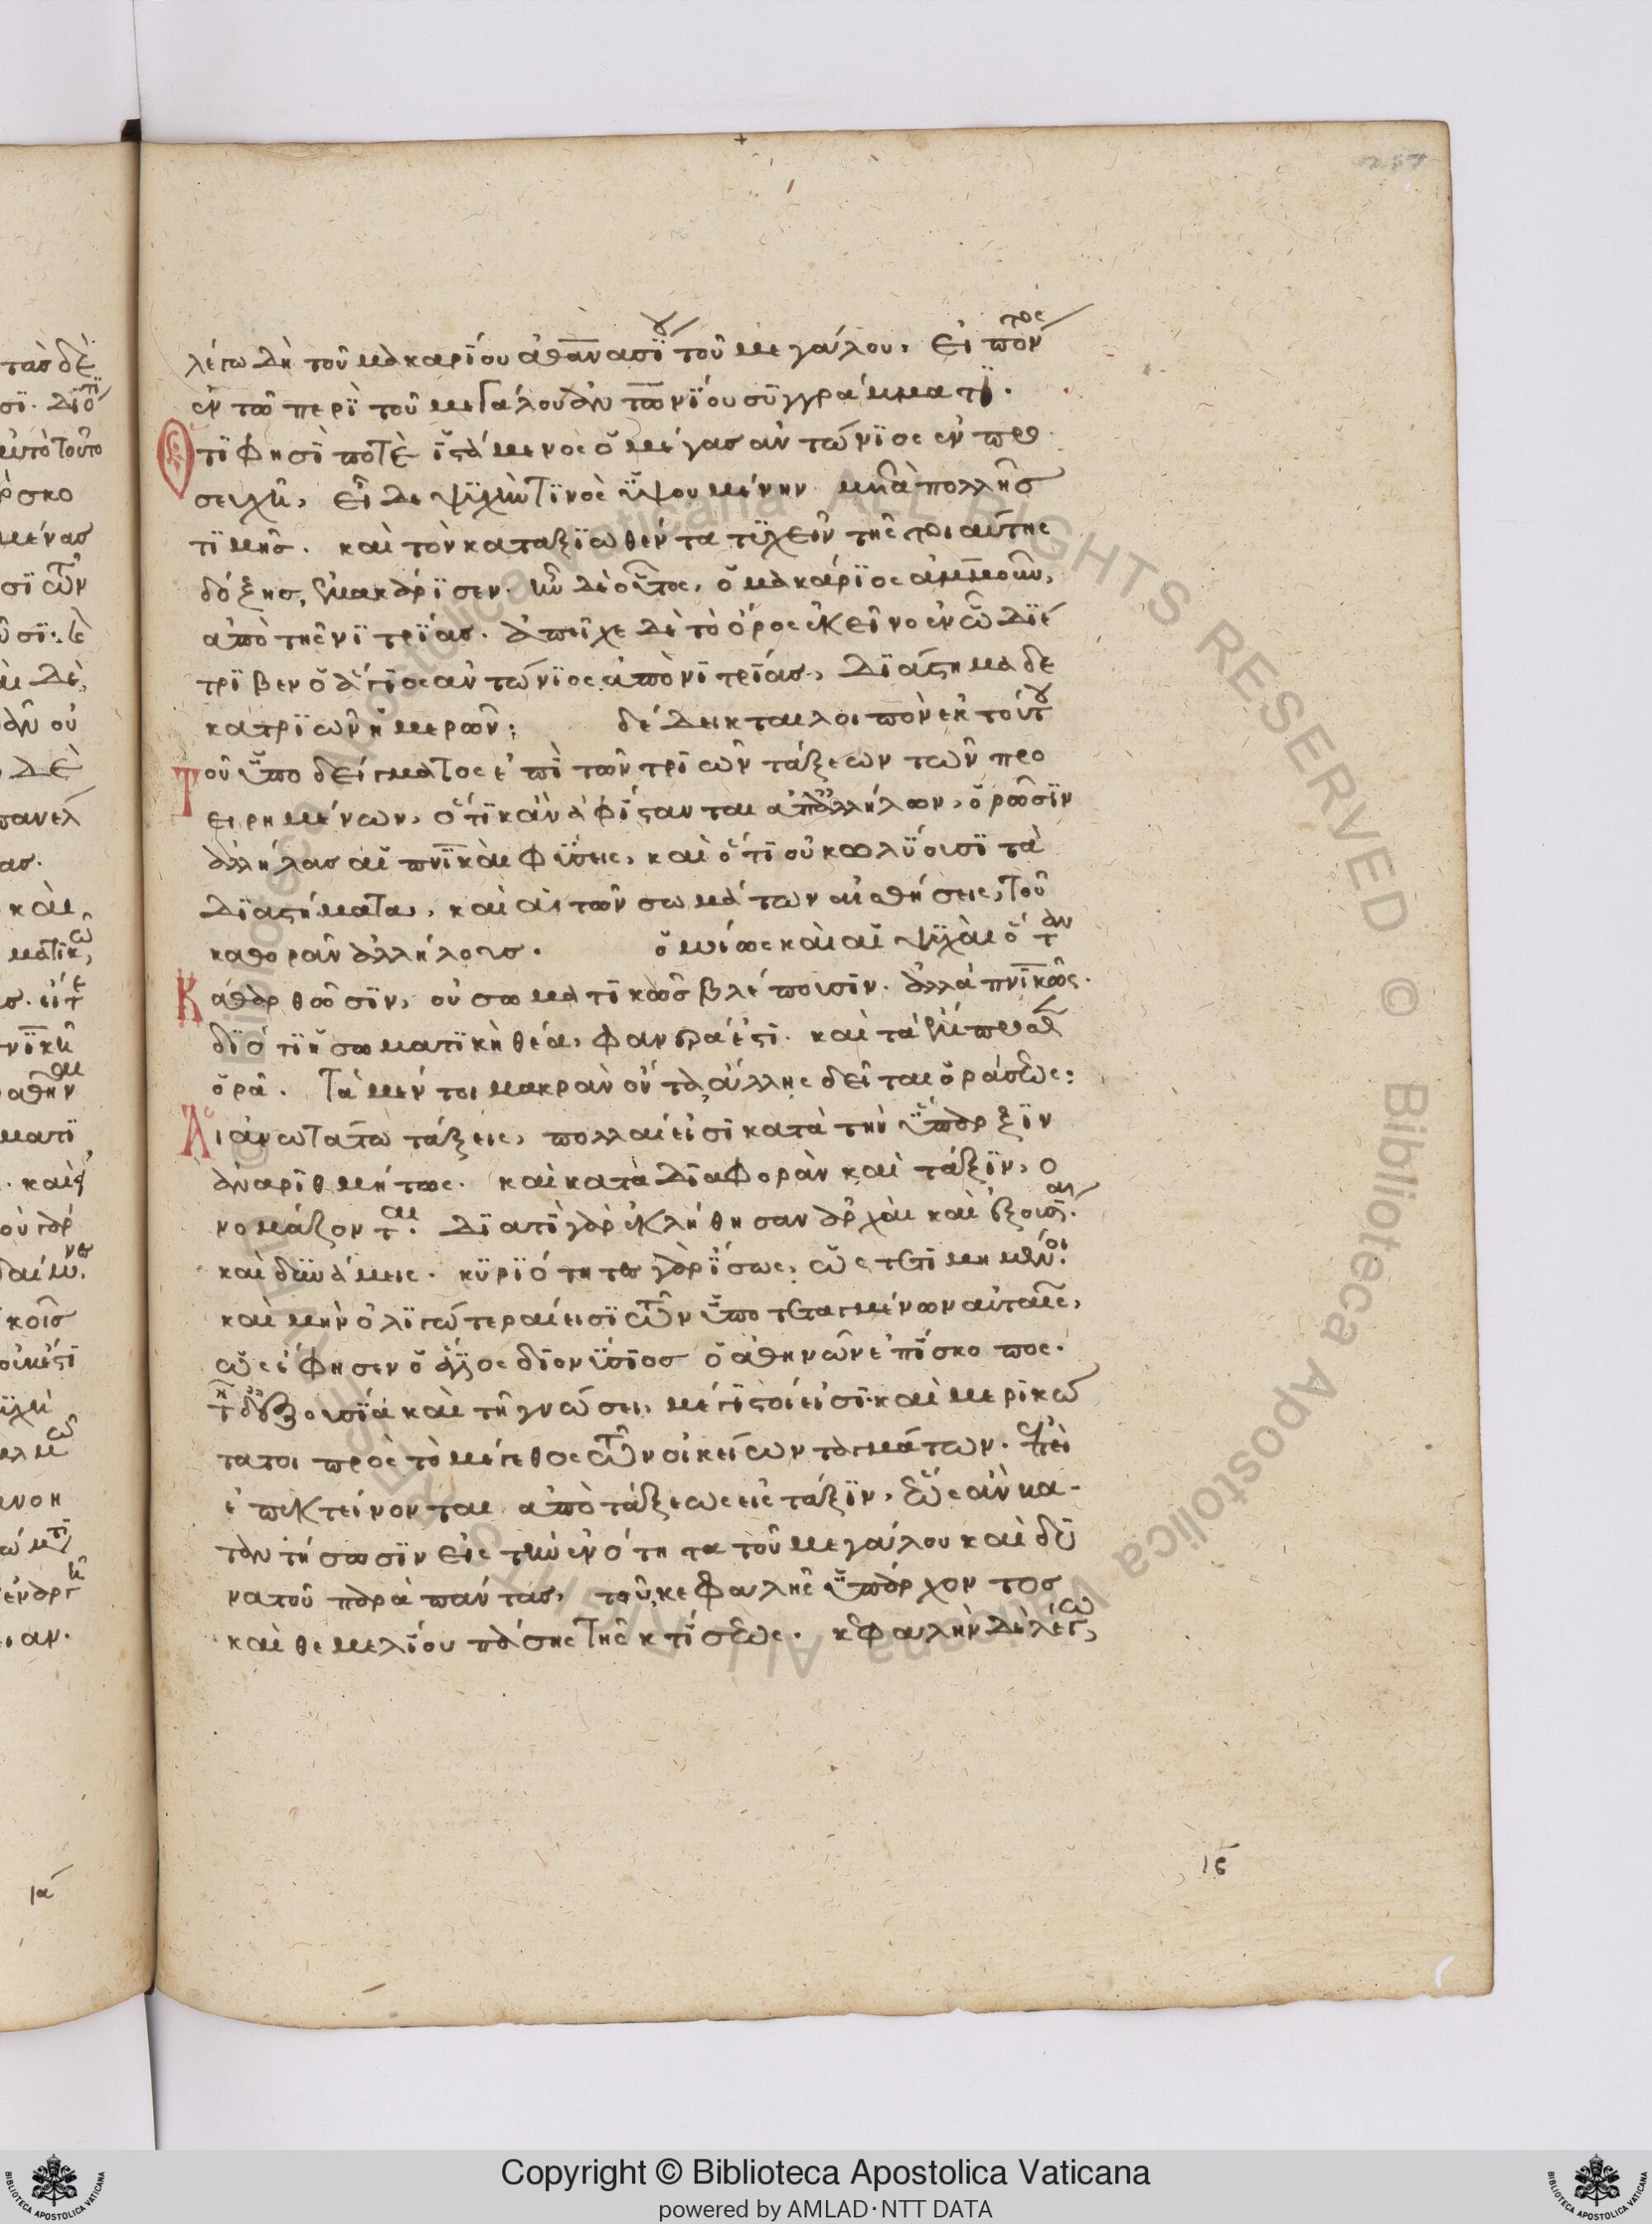 λέγω δὴ τοῦ μακαρίου ἀθανασΐου τοῦ μεγάλου, εἰπόντος
ἐν τῶ περὶ τοῦ μεγάλου ἀντωνΐου συγγράμματϊ.
Ὅτϊ φησὶ ποτὲ ἱστάμενος ὁ μέγας ἀντώνϊος ἐν προ
σευχῆ, εἶδε ψυχὴν τινὸς ὑψουμένην μετὰ πολλῆς
τϊμῆς. καὶ τὸν καταξϊωθέντα τυχεῖν τῆς τοιαύτης
δόξης, ἐμακάρϊσεν. ἦν δὲ οὗτος, ὁ μακάρϊος ἀμμοῦν,
ἀπὸ τῆς νϊτρΐας. ἀπεῖχε δὲ τὸ ὄρος ἐκεῖνο ἐν ὧ δϊέ
τρϊβεν ὁ ἅγϊος ἀντώνϊος ἀπὸ νϊτρΐας, δϊάστημα δε
κατρϊῶν ἡμερῶν: δέδεικται λοιπὸν ἐκ τούτου
Τοῦ ὑποδείγματος ἐπὶ τῶν τρϊῶν τάξεων τῶν προ
ειρημένων, ὅτϊ κἂν ἀφίστανται ἀπαλλήλων, ὁρῶσϊν
ἀλλήλας αἱ πνϊκαὶ φύσεις, καὶ ὅτϊ οὐ κωλύουσϊ τὰ
δϊαστήματα, καὶ αἱ τῶν σωμάτων αἰσθήσεις, τοῦ
καθορᾶν ἀλλήλους. ὁμοίως καὶ αἱ ψυχαὶ ὅταν
Καθαρθῶσϊν, οὐ σωματϊκῶς βλέπουσιν. ἀλλὰ πνϊκῶς.
δϊότϊ ἡ σωματϊκὴ θέα, φανερά ἐστϊ. καὶ τὰ ἔμπροσθεν
ὁρᾶ. Τὰ μέντοι μακρὰν ὄντα, ἄλλης δεῖται ὁράσεως:
Αἱ ἀνωτάτω τάξεις, πολλαί εἰσϊ κατὰ τὴν ὕπαρξϊν
ἀναρϊθμήτως. καὶ κατὰ δϊαφορὰν καὶ τάξϊν, ὀ
νομάζονται. δϊατὶ γὰρ ἐκλήθησαν ἀρχαὶ καὶ ἐξουσΐαι.
καὶ δυνάμεις. κυρϊότητες γὰρ ἴσως, ὡς τετϊμημένοι.
καὶ μὴν ὀλϊγώτεραί εἰσϊ τῶν ὑποτεταγμένων αὐταῖς,
ὡς ἔφησεν ὁ ἅγϊος δϊονύσϊος ὁ ἀθηνῶν ἐπΐσκοπος.
τῆ δὲ ἐξουσΐα καὶ τῆ γνώσει, μέγϊστοί εἰσϊ καὶ μερϊκώ
τατοι πρὸς τὸ μέγεθος τῶν οἰκείων ταγμάτων. ἐπεὶ
ἐπεκτείνονται ἀπὸ τάξεως εἰς τάξϊν, ἕως ἂν κα-
ταντήσωσϊν εἰς τὴν ἑνότητα τοῦ μεγάλου καὶ δυ
νατοῦ παρὰ πάντας, τοῦ κεφαλῆς ὑπάρχοντος
καὶ θεμελΐου πάσης τῆς κτΐσεως. κεφαλὴν δὲ λέγω,
ιϛ
Copyright © Biblioteca Apostolica Vaticana
powered by AMLAD·NTT DATA